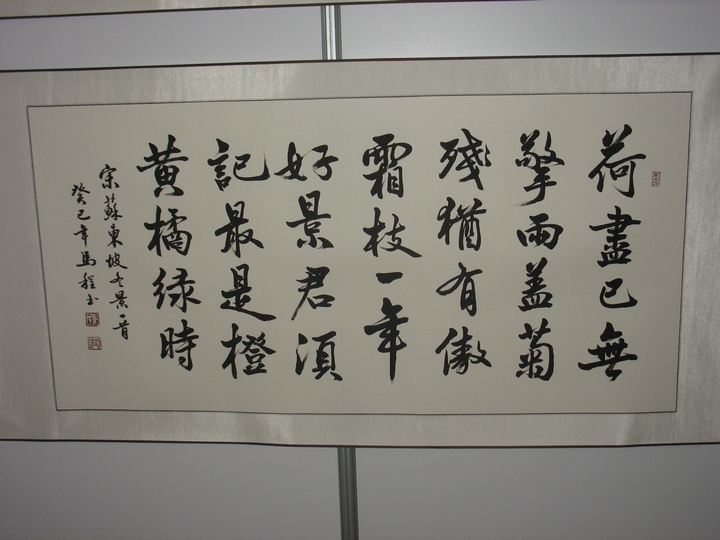 荷盡已無
擎雨盖菊
殘猶有傲
霜枝一年
好景君須
記最是橙
黄橘绿時
宋蘇東坡冬景一首
癸巳年馬程書